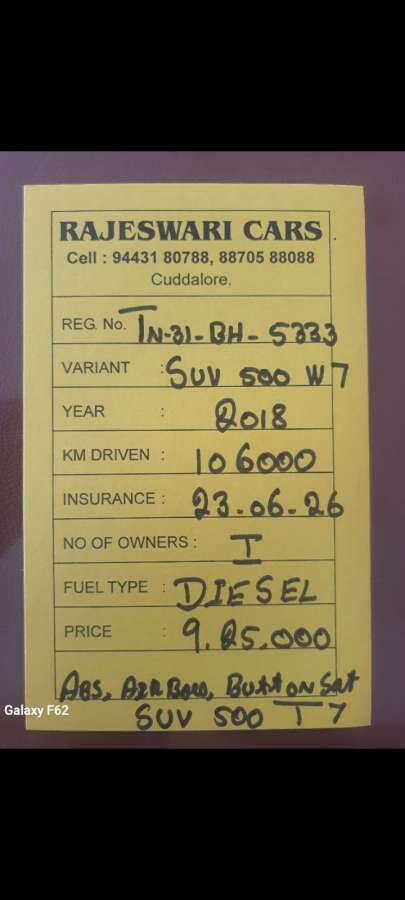 RAJESWARI CARS
Cell : 94431 80788, 88705 88088
Cuddalore.
REG. No. TN-31-BH-5333
VARIANT : SUV 500 W7
YEAR : 2018
KM DRIVEN : 106000
INSURANCE : 23-06-26
NO OF OWNERS : I
FUEL TYPE : DIESEL
PRICE : 9.25.000
ABS, AIR BAG, BUTTON
SUV 500 T 7
Galaxy F62